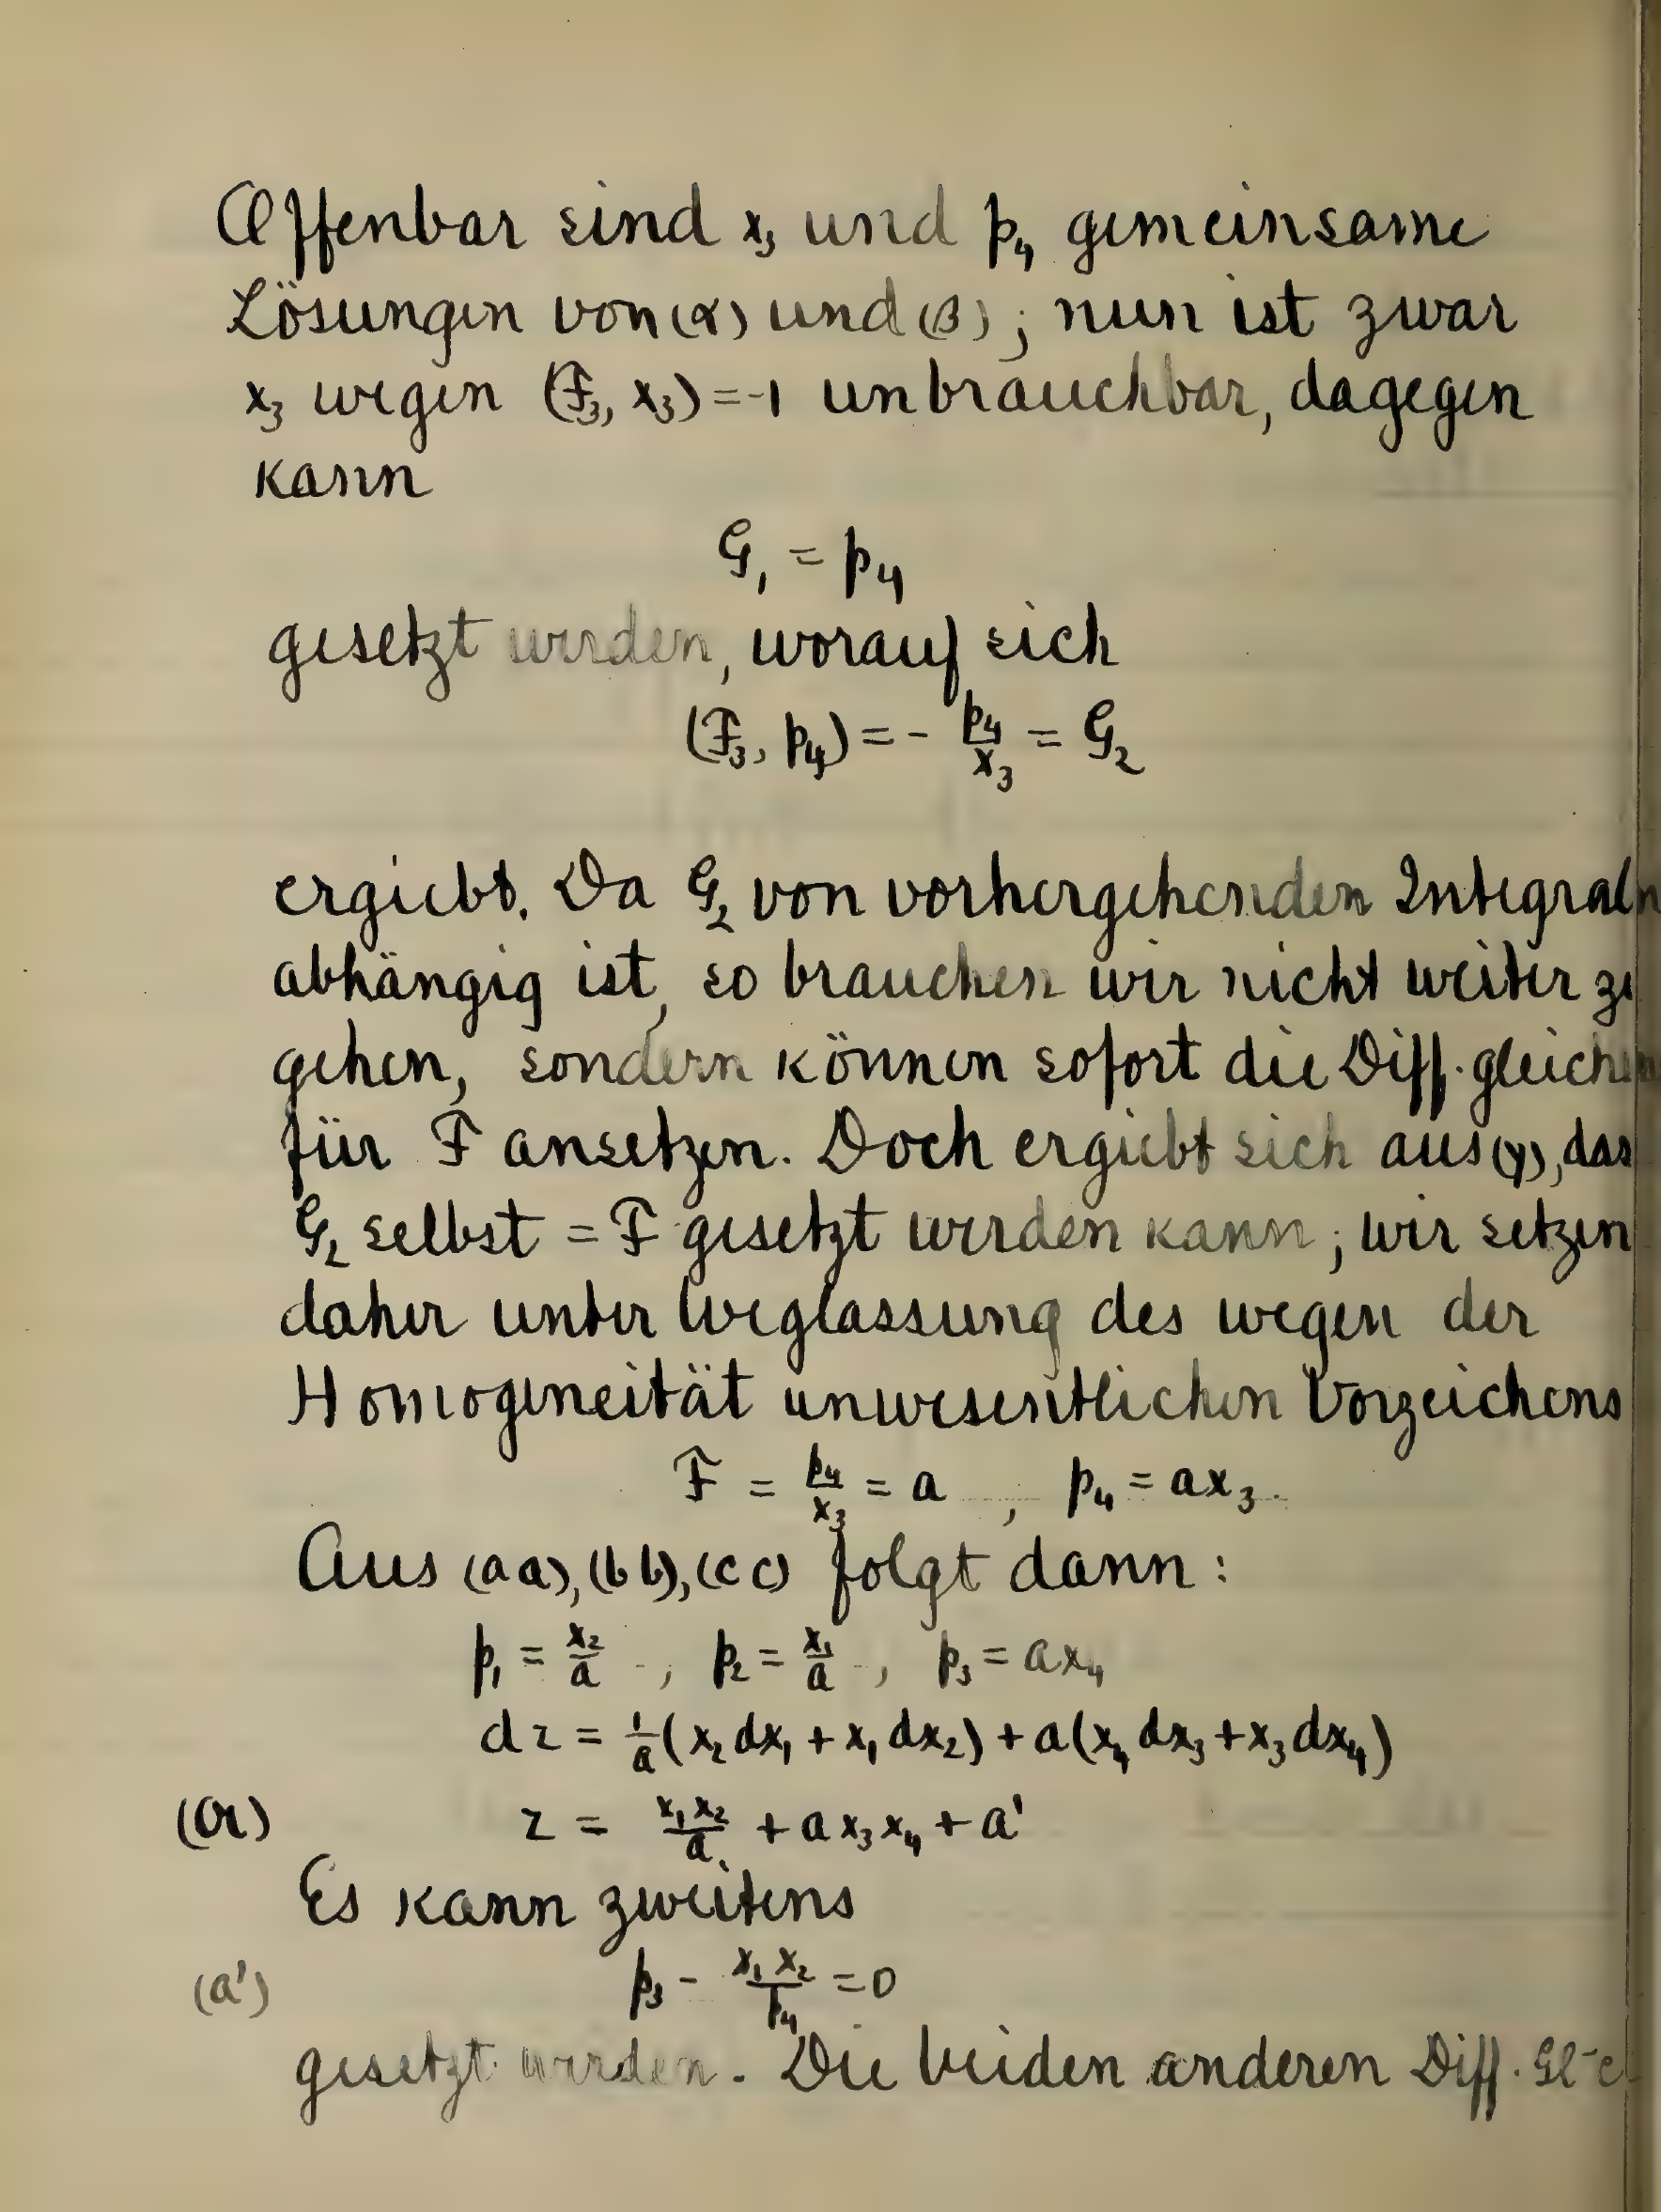 Offenbar sind x₃ und p₄ gemeinsame
Lösungen von (α) und (β); nun ist zwar
x₃ wegen (F₃, x₃) = -1 unbrauchbar, dagegen
kann
G₁ = p₄
gesetzt werden, worauf sich
(F₃, p₄) = - p₄/x₃ = G₂
ergiebt. Da G₂ von vorhergehenden Integraln
abhängig ist, so brauchen wir nicht weiter zu
gehen, sondern können sofort die Diff. gleich
für F ansetzen. Doch ergiebt sich aus (γ), das
G₂ selbst = F gesetzt werden kann; wir setzen
daher unter Weglassung des wegen der
Homogeneität unwesentlichen Vorzeichens
F = p₄/x₃ = a , p₄ = ax₃.
Aus (aa), (bb), (cc) folgt dann:
p₁ = x₂/a , p₂ = x₁/a , p₃ = ax₄
dz = 1/a (x₂dx₁ + x₁dx₂) + a(x₄dx₃ + x₃dx₄)
(α) z = x₁x₂/a + ax₃x₄ + a'
Es kann zweitens
(a') p₃ - x₁x₂/p₄ = 0
gesetzt werden. Die beiden anderen Diff. Gl-e